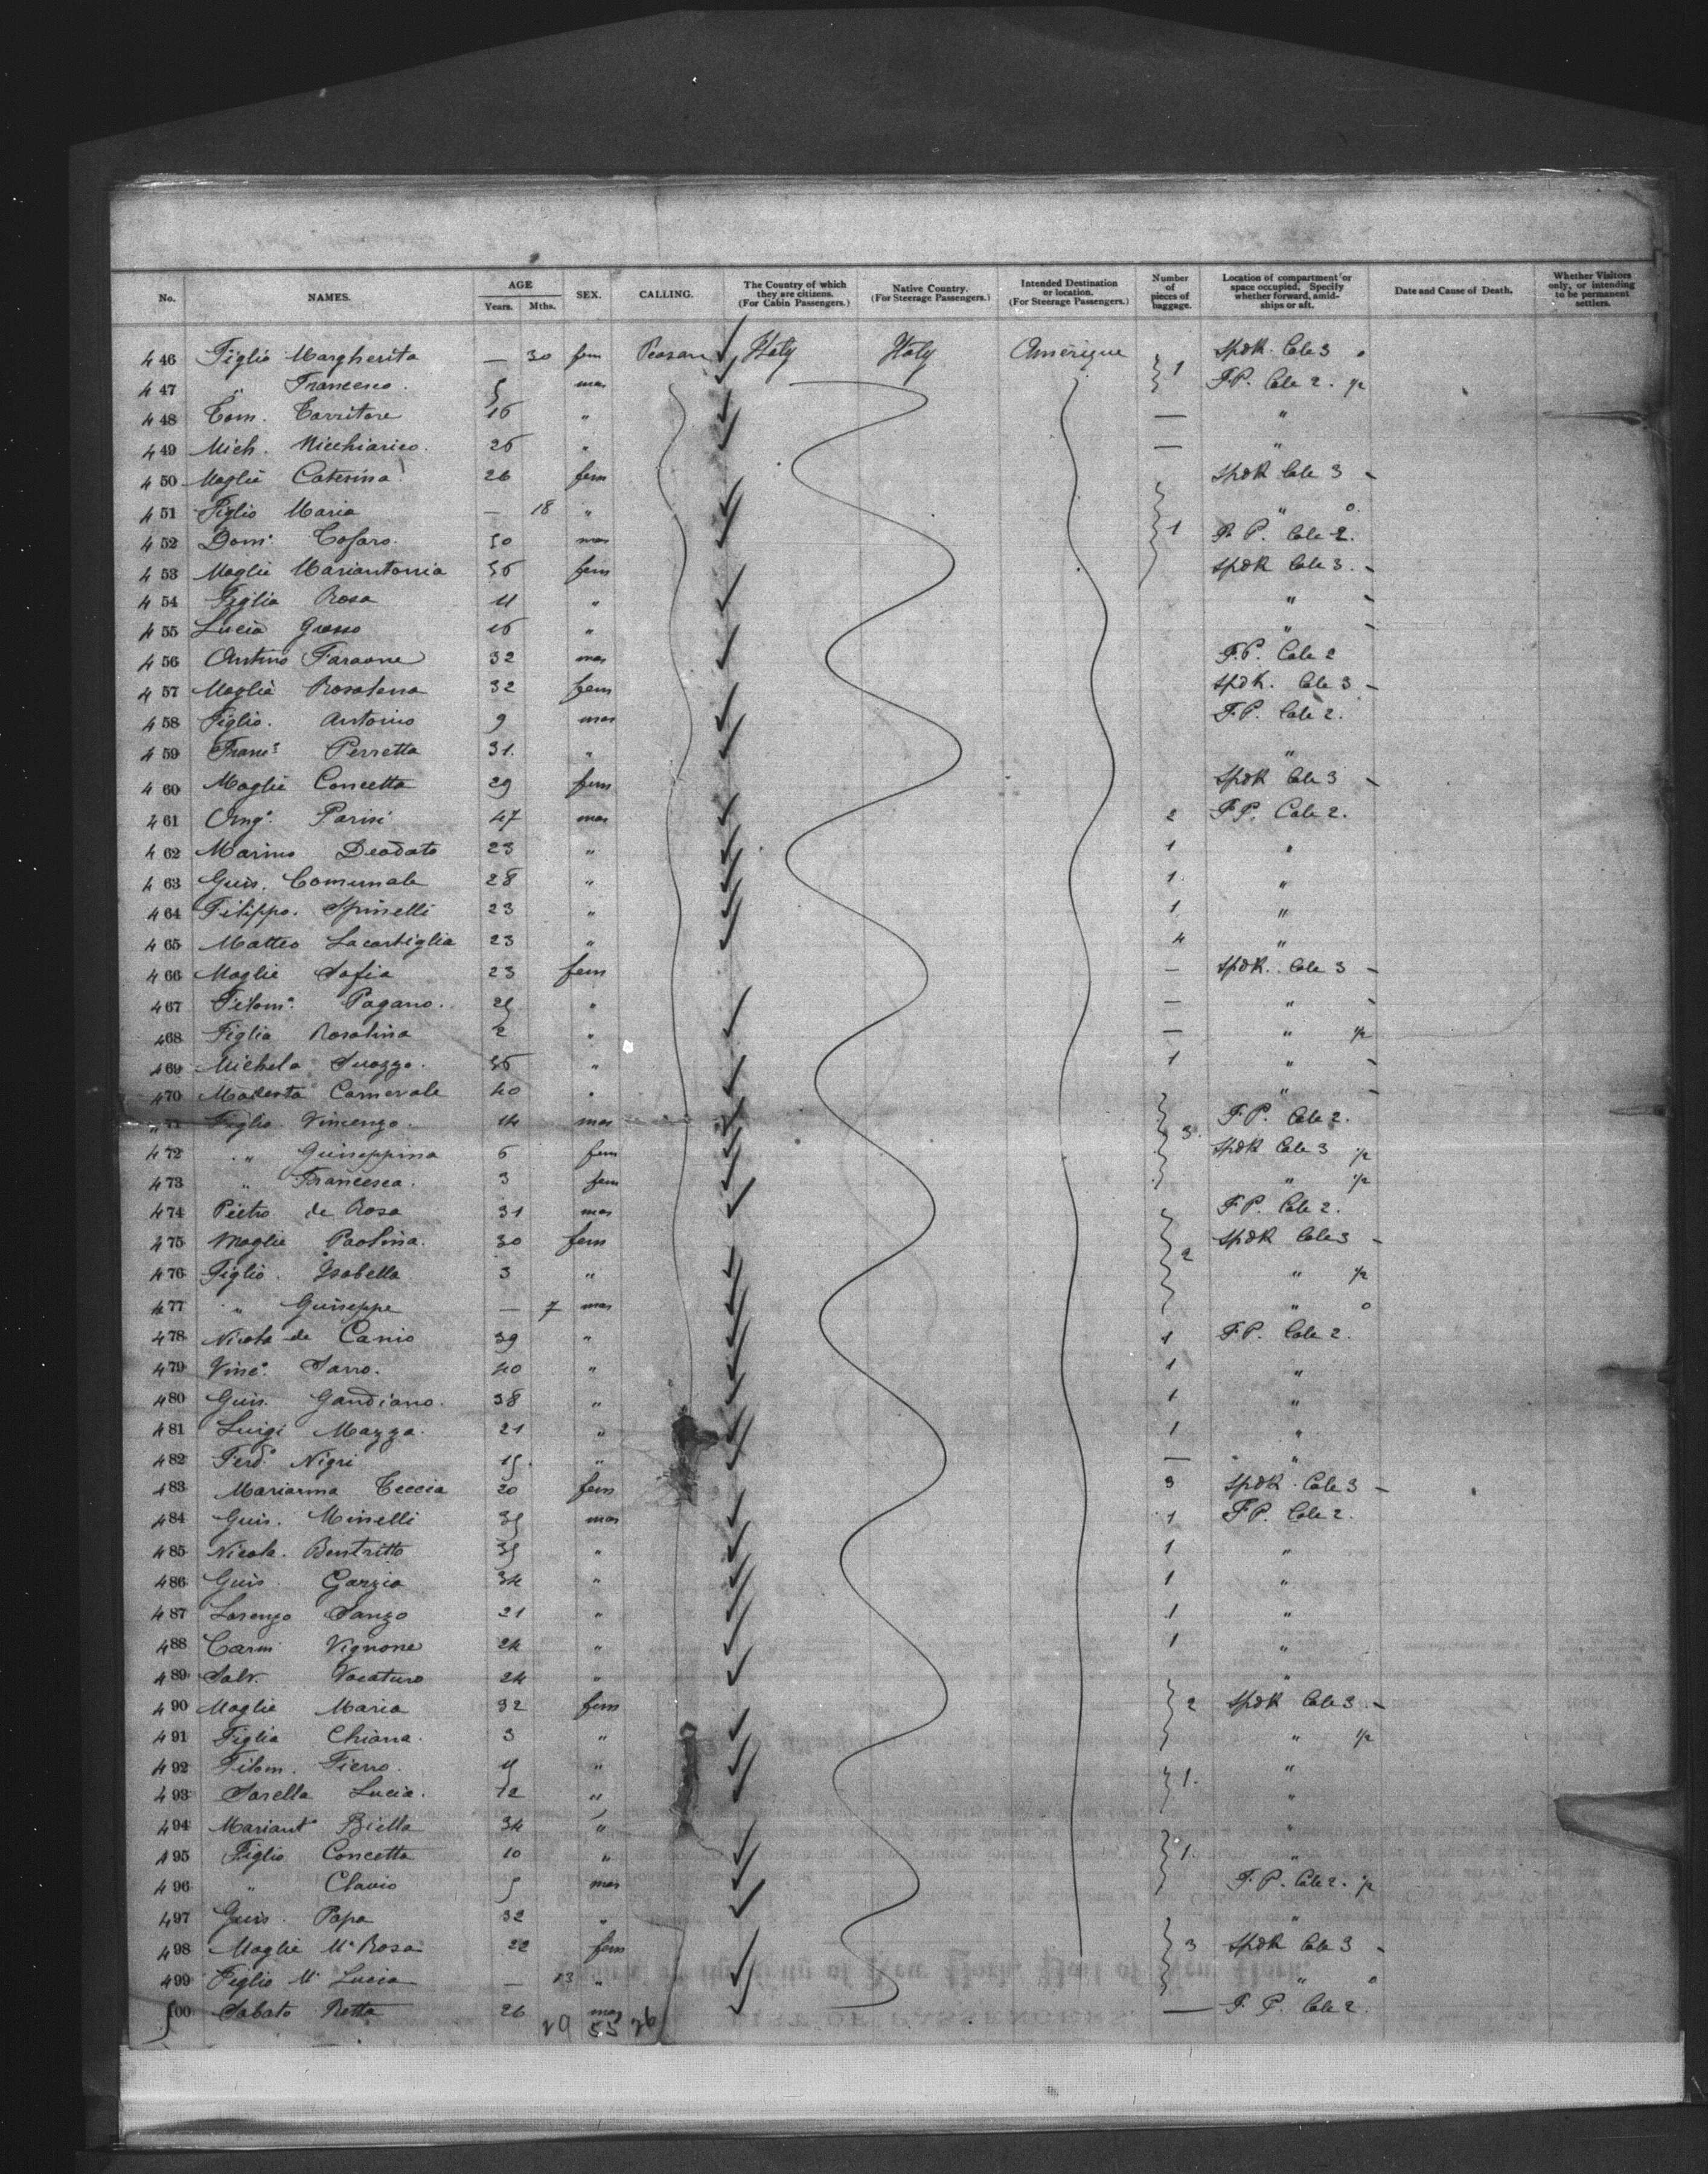 No. NAMES. AGE Years. Mths. SEX. CALLING. The Country of which they are citizens. (For Cabin Passengers.) Native Country. (For Steerage Passengers.) Intended Destination or location. (For Steerage Passengers.) Number of pieces of baggage. Location of compartment or space occupied. Specify whether forward, amidships or aft. Date and Cause of Death. Whether Visitors only, or intending to be permanent settlers.
446 Figlio Margherita — 30 fem Peasan Italy Italy Amérique 1 SpdK Cale 3 o
447 " Francesco. 5 mas F.P. Cale 2. ½
448 Tom. Torritore 16 " — "
449 Mich. Nicchiarico. 26 " — "
450 Moglie Caterina 26 fem SpdK Cale 3 -
451 Figlio Maria — 18 " " o
452 Dom. Tofaro. 50 mas 1 F.P. Cale 2.
453 Moglie Mariantonia 36 fem SpdK Cale 3. -
454 Figlia Rosa 11 " " -
455 Lucia Grasso 16 " " -
456 Antino Faraone 32 mas F.P. Cale 2
457 Moglie Rosalena 32 fem SpdK. Cale 3 -
458 Figlio. Antonio 9 mas F.P. Cale 2.
459 Franc. Perretta 31. " "
460 Moglie Concetta 29 fem SpdK Cale 3 -
461 Ang. Parisi 47 mas 2 F.P. Cale 2.
462 Marino Deodato 23 " 1 "
463 Guis. Comunale 28 " 1. "
464 Filippo. Spinelli 23 " 1 "
465 Matteo Lacortiglia 23 " 4 "
466 Moglie Sofia 23 fem — SpdK. Cale 3 -
467 Filom. Pagano. 25 " — " -
468 Figlia Rosalina 2 " — " ½
469 Michela Suozzo. 36 " 1 " -
470 Modesta Carnevale 40 " " -
471 Figlio Vincenzo. 14 mas 3. F.P. Cale 2.
472 " Guiseppina 6 fem SpdK Cale 3 ½
473 " Francesca. 3 fem " ½
474 Pietro de Rosa 31 mas F.P. Cale 2.
475 Moglie Paolina. 30 fem 2 SpdK Cale 3 -
476 Figlio. Isabella 3 " " ½
477 " Guiseppe — 7 mas " o
478 Nicola de Canio 39 " 1 F.P. Cale 2.
479 Vinc. Sarro. 40 " 1 "
480 Guis. Gandiano. 38 " 1 "
481 Luigi Mazza. 21 " 1 "
482 Ferd. Nigri 15. " — "
483 Marianna Ceccia 20 fem 3 SpdK. Cale 3 -
484 Guis. Minelli 35 mas 1 F.P. Cale 2.
485 Nicola. Bentritto 35 " 1 "
486 Guis. Garzia 34 " 1 "
487 Lorenzo Sanzo 21 " 1 "
488 Carm. Vignone 24 " 1 "
489 Salv. Vacaturo 24 " "
490 Moglie Maria 32 fem 2 SpdK Cale 3. -
491 Figlia Chiara. 3 " " ½
492 Filom. Fierro. " 1. "
493 Sorella Lucia. 12 " "
494 Mariant. Biella 34 " "
495 Figlio Concetta 10 " 1. "
496 " Clavio 5 mas F.P. Cale 2. ½
497 Guis. Papa 32 " "
498 Moglie Mª Rosa 22 fem 3 SpdK Cale 3 -
499 Figlio M. Lucia — 13 " " o
500 Sabato Retta 26 mas — F.P. Cale 2.
29 55 26